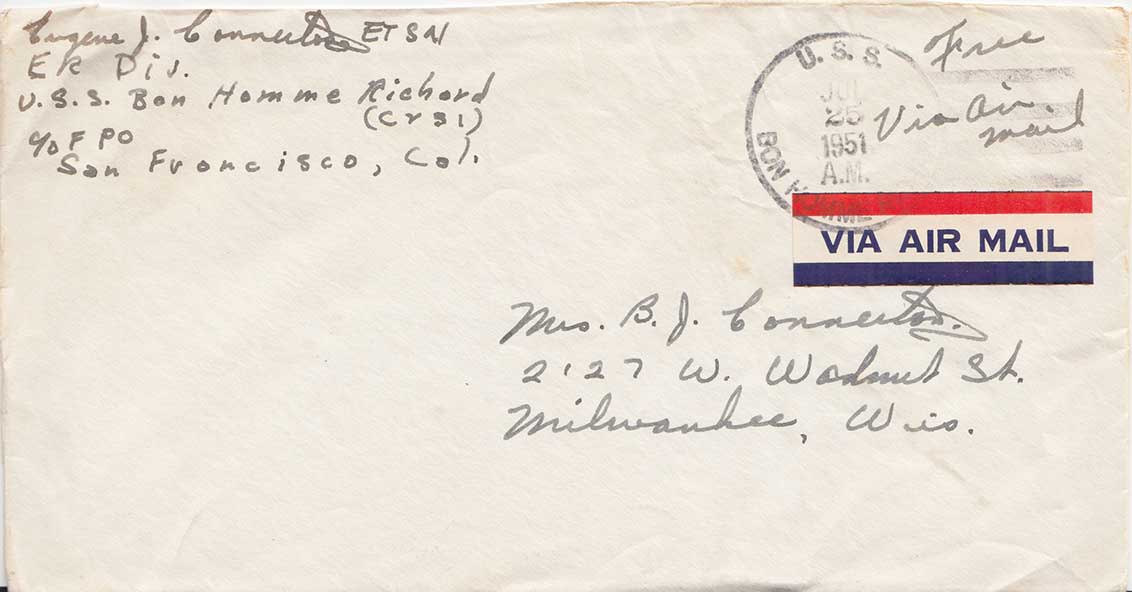 Eugene J. Connerton ETSN
ER Div.
U.S.S. Bon Homme Richard
(CV31)
c/o F PO
San Francisco, Cal.
U.S.S.
JUL
25
1951
A.M.
BON HOMME
Free
Via Air
mail
VIA AIR MAIL
Mrs. B. J. Connerton.
2127 W. Walnut St.
Milwaukee, Wis.